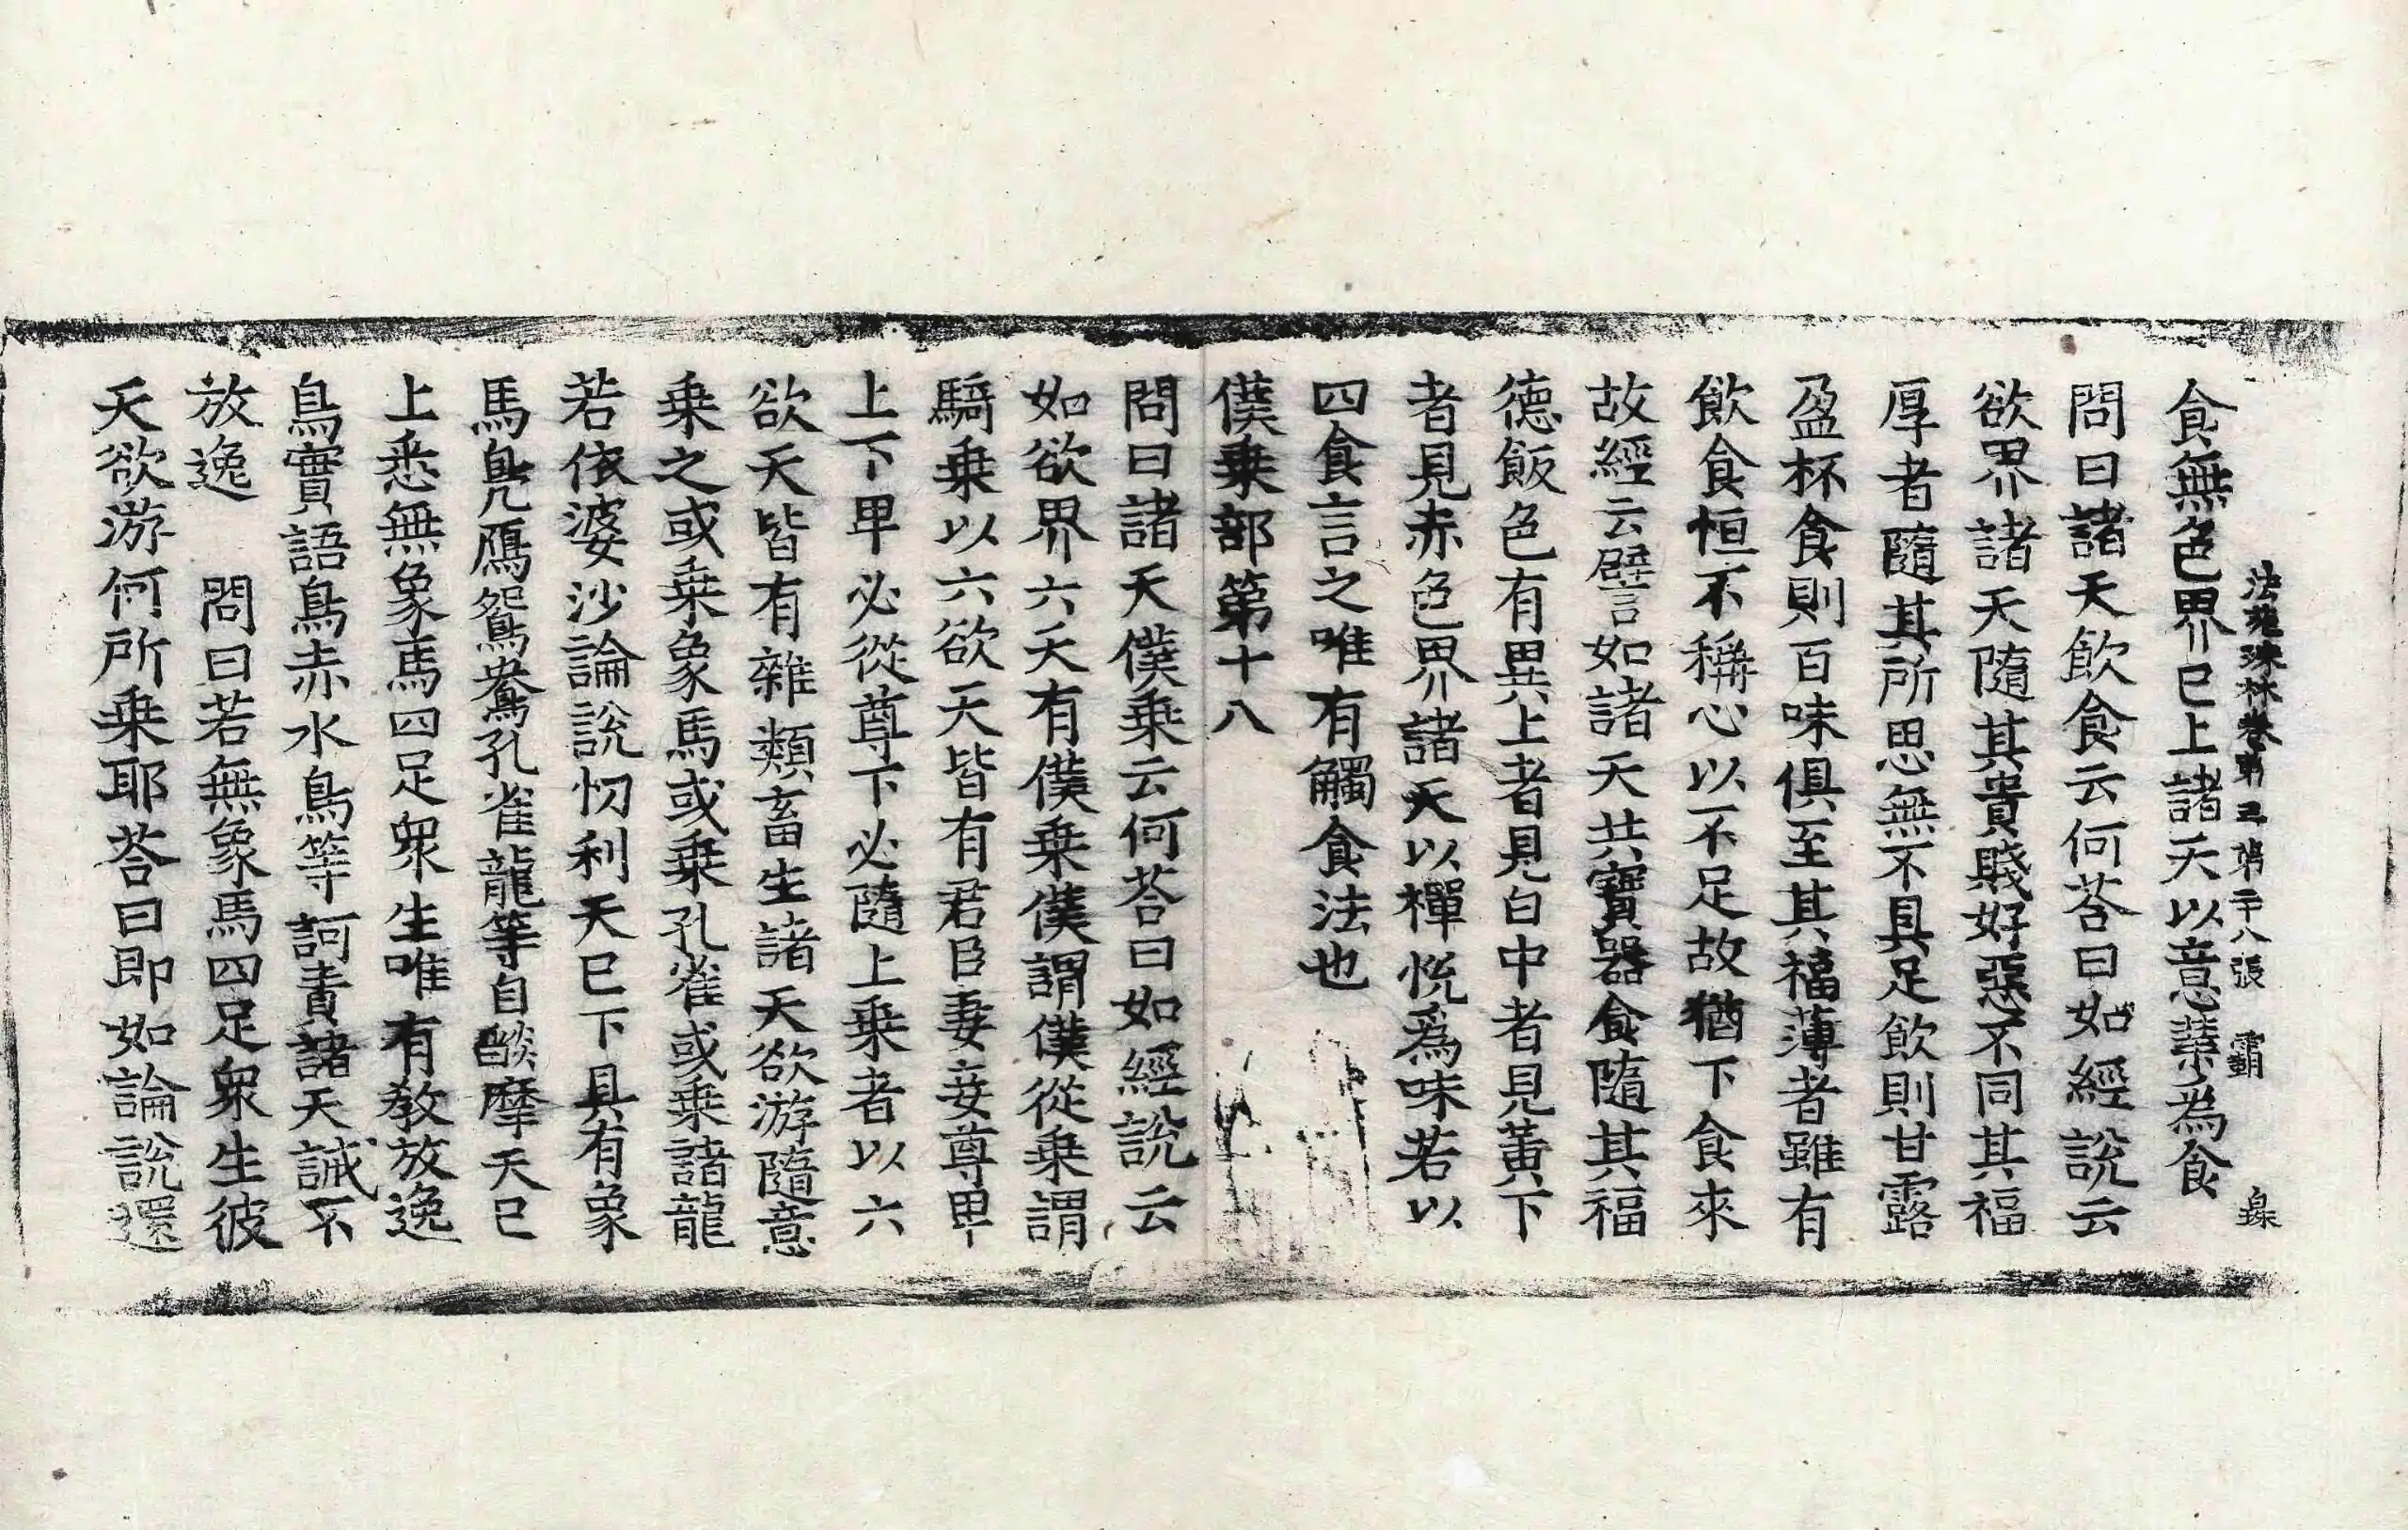 法苑珠林卷第三 第二十八張 霸 㒼
食無色界已上諸天以意業為食
問曰諸天飲食云何荅曰如經說云
欲界諸天隨其貴賤好惡不同其福
厚者隨其所思無不具足飲則甘露
盈杯食則百味俱至其福薄者雖有
飲食恒不稱心以不足故猶下食來
故經云譬如諸天共寶器食隨其福
德飯色有異上者見白中者見黃下
者見赤色界諸天以禪悅為味若以
四食言之唯有觸食法也
僕乗部第十八
問曰諸天僕乗云何荅曰如經說云
如欲界六天有僕乗僕謂僕從乗謂
騎乗以六欲天皆有君臣妻妾尊卑
上下卑必從尊下必隨上乗者以六
欲天皆有雜類畜生諸天欲游隨意
乗之或乗象馬或乗孔雀或乗諸龍
若依婆沙論說忉利天已下具有象
馬鳧鴈鴛鴦孔雀龍等自𦦨摩天已
上悉無象馬四足衆生唯有教放逸
鳥實語鳥赤水鳥等訶責諸天誡不
放逸 問曰若無象馬四足衆生彼
天欲游何所乗耶荅曰即如論說還